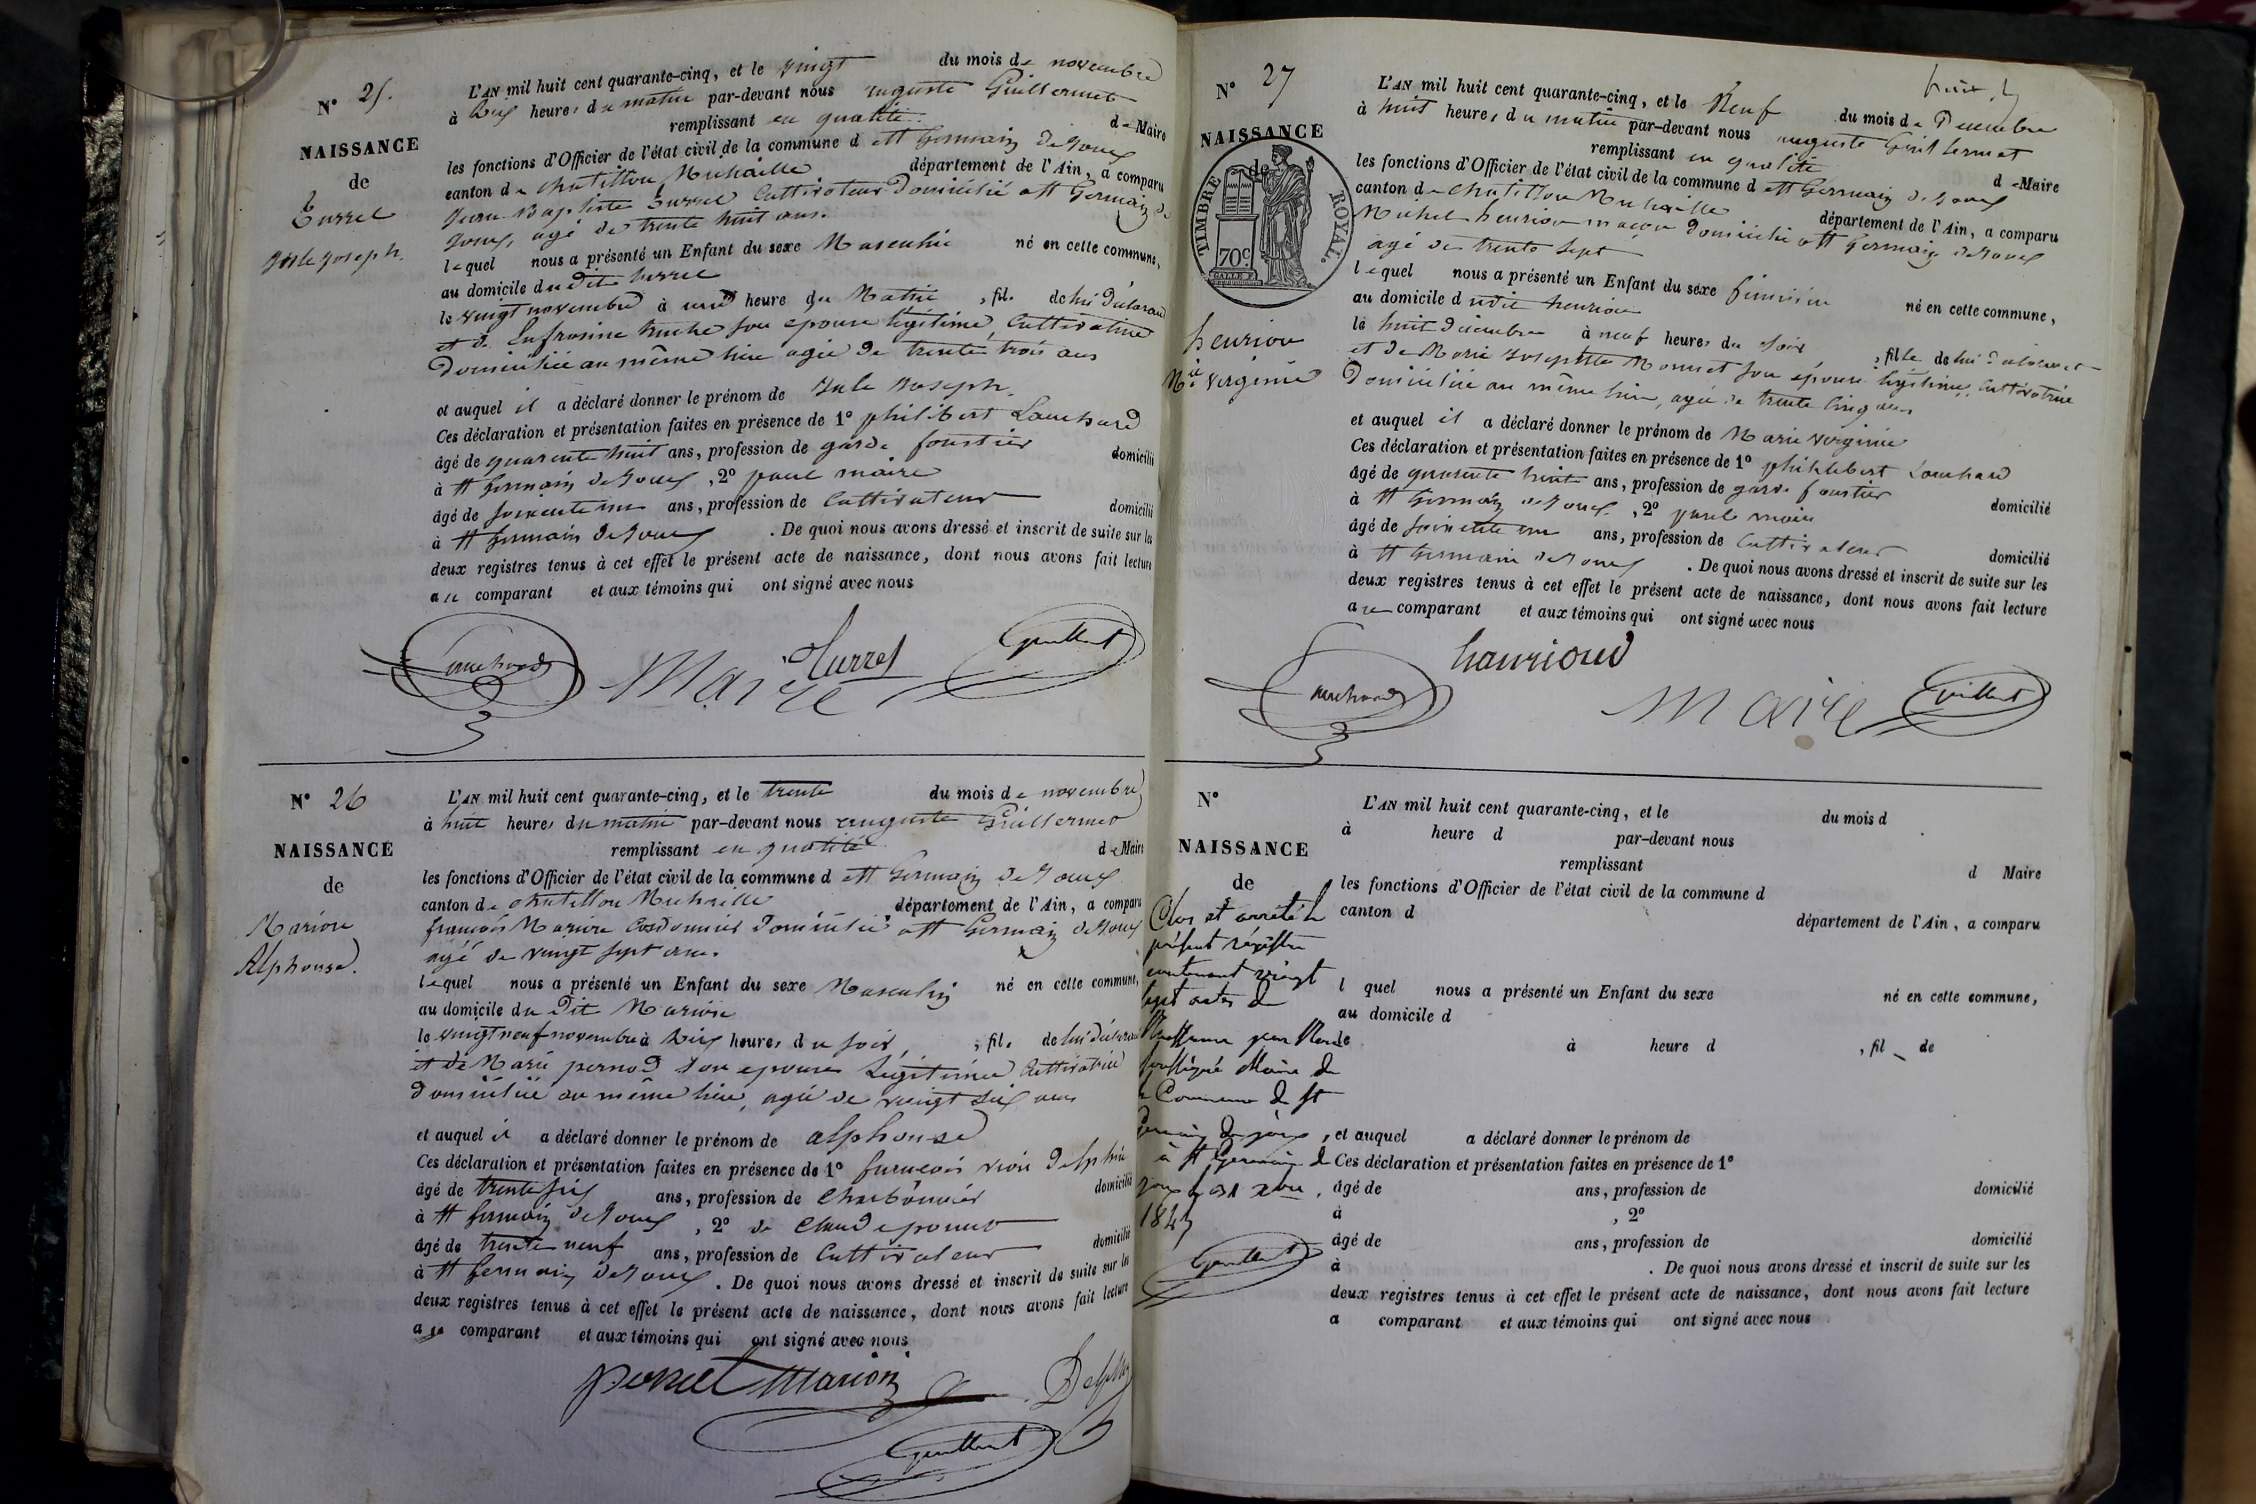 N° 25.
NAISSANCE
de
Turrel
Jule Joseph.
L'AN mil huit cent quarante-cinq, et le vingt du mois de novembre
à dix heures du matin par-devant nous auguste Guillermet
remplissant en qualité de Maire
les fonctions d'Officier de l'état civil de la commune d st Germain de Joux
canton de chatillon Michaille département de l'Ain, a comparu
Jean Baptiste turrel Cultivateur Domicilié a st Germain de
Joux, agé de trente huit ans.
lequel nous a présenté un Enfant du sexe Masculin né en cette commune,
au domicile du dit turrel
le vingt novembre à une heure du Matin, fils de lui déclarant
et de Eufrosine son epouse légitime, Cultivatrice
Domiciliée au même lieu agée de trente trois ans
et auquel il a déclaré donner le prénom de Jule Joseph.
Ces déclaration et présentation faites en présence de 1° philibert Louchard
âgé de quarente huit ans, profession de garde foustier domicilié
à st Germain de Joux, 2° paul maire
âgé de soixente un ans, profession de Cultivateur domicilié
à st Germain de Joux. De quoi nous avons dressé et inscrit de suite sur les
deux registres tenus à cet effet le présent acte de naissance, dont nous avons fait lecture
au comparant et aux témoins qui ont signé avec nous
Louchard Maire Turrel Guillermet
N° 26
NAISSANCE
de
Marion
Alphonse.
L'AN mil huit cent quarante-cinq, et le trente du mois de novembre
à huit heures du matin par-devant nous auguste Guillermet
remplissant en qualité de Maire
les fonctions d'Officier de l'état civil de la commune d st Germain de Joux
canton de chatillon Michaille département de l'Ain, a comparu
françois Marion Cordonnier Domicilié a st Germain de Joux
agé de vingt sept ans.
lequel nous a présenté un Enfant du sexe Masculin né en cette commune,
au domicile du dit Marion
le vingt neuf novembre à dix heures du soir, fils de lui déclarant
et de Marie pernod son epouse Légitime Cultivatrice
domiciliée au même lieu, agée de vingt six ans
et auquel il a déclaré donner le prénom de alphonse
Ces déclaration et présentation faites en présence de 1° françois Delphin
âgé de trente six ans, profession de Charbonnier domicilié
à st Germain de Joux, 2° de Claude
âgé de trente neuf ans, profession de Cultivateur domicilié
à st Germain de Joux. De quoi nous avons dressé et inscrit de suite sur les
deux registres tenus à cet effet le présent acte de naissance, dont nous avons fait lecture
au comparant et aux témoins qui ont signé avec nous
Marion Delphin
Guillermet
N° 27
NAISSANCE
de
TIMBRE ROYAL.
70c.
henriou
Mie virginie
L'AN mil huit cent quarante-cinq, et le Neuf du mois de Decembre
à huit heures du matin par-devant nous auguste Guillermet
remplissant en qualité de Maire
les fonctions d'Officier de l'état civil de la commune d st Germain de Joux
canton de chatillon Michaille département de l'Ain, a comparu
Michel henriou maçon domicilié a st Germain de Joux
agé de trente sept
lequel nous a présenté un Enfant du sexe feminin né en cette commune,
au domicile du dit henriou
le huit decembre à neuf heures du soir, fille de lui declarant
et de Marie Josephte Monnet son épouse légitime, Cultivatrice
Domiciliée au même lieu, agée de trente cinq ans
et auquel il a déclaré donner le prénom de Marie virginie
Ces déclaration et présentation faites en présence de 1° philibert Louchard
âgé de quarente huit ans, profession de garde foustier domicilié
à st Germain de Joux, 2° paul maire
âgé de soixente un ans, profession de Cultivateur domicilié
à st Germain de Joux. De quoi nous avons dressé et inscrit de suite sur les
deux registres tenus à cet effet le présent acte de naissance, dont nous avons fait lecture
au comparant et aux témoins qui ont signé avec nous
hanrioud
Louchard Maire Guillermet
N°
NAISSANCE
de
Clos et arrêté le
présent régistre
contenant vingt
sept actes de
Naissance par Nous
soussigné Maire de
la Commune de St
Germain de joux,
à St Germain de
joux le 31 xbre.
1845
Guillermet
L'AN mil huit cent quarante-cinq, et le du mois d
à heure d par-devant nous
remplissant d Maire
les fonctions d'Officier de l'état civil de la commune d
canton d département de l'Ain, a comparu
l quel nous a présenté un Enfant du sexe né en cette commune,
au domicile d
le à heure d, fil de
et auquel a déclaré donner le prénom de
Ces déclaration et présentation faites en présence de 1°
âgé de ans, profession de domicilié
à, 2°
âgé de ans, profession de domicilié
à. De quoi nous avons dressé et inscrit de suite sur les
deux registres tenus à cet effet le présent acte de naissance, dont nous avons fait lecture
a comparant et aux témoins qui ont signé avec nous